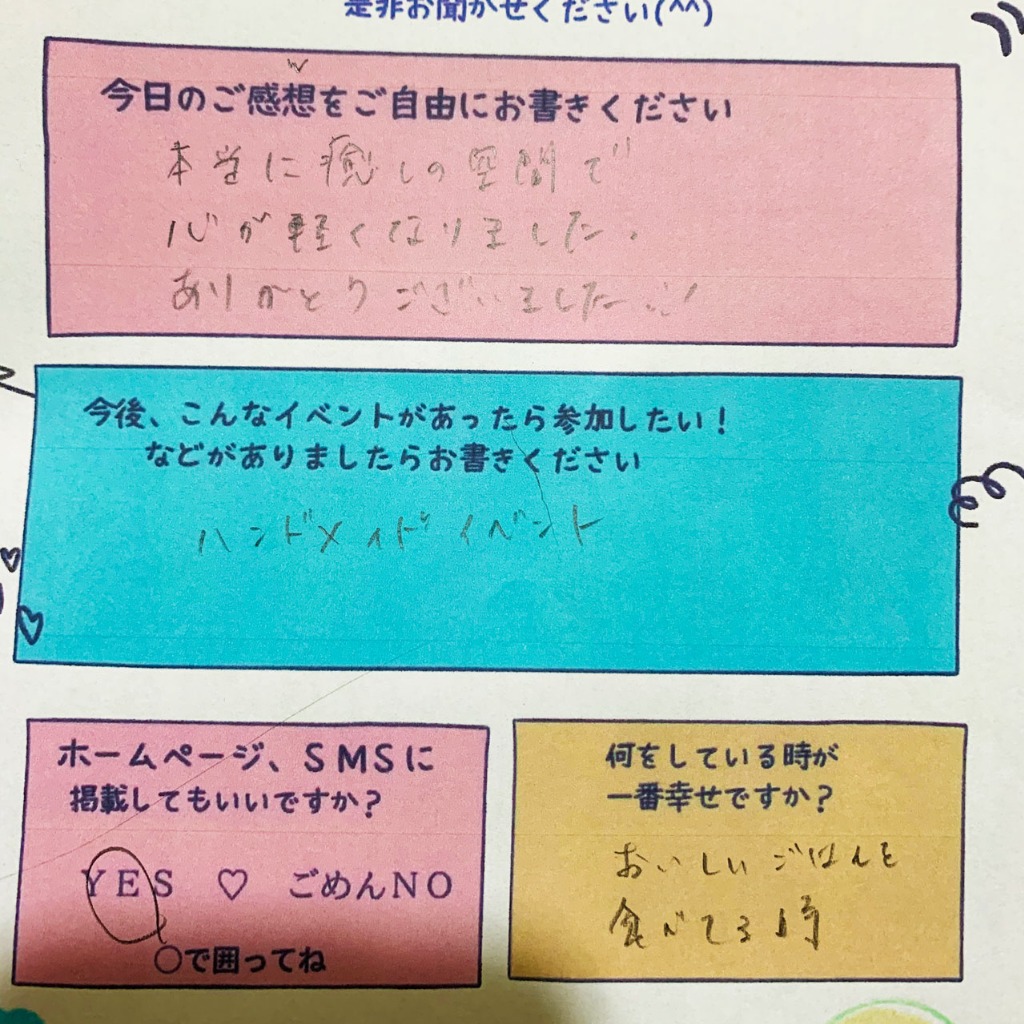 是非お聞かせください(^^)
今日のご感想をご自由にお書きください
本当に癒しの空間で
心が軽くなりました。
ありがとうございました!
今後、こんなイベントがあったら参加したい!
などがありましたらお書きください
ハンドメイドイベント
ホームページ、SMSに
掲載してもいいですか?
YES ♡ ごめんNO
○で囲ってね
何をしている時が
一番幸せですか?
おいしいごはんを
食べてる時